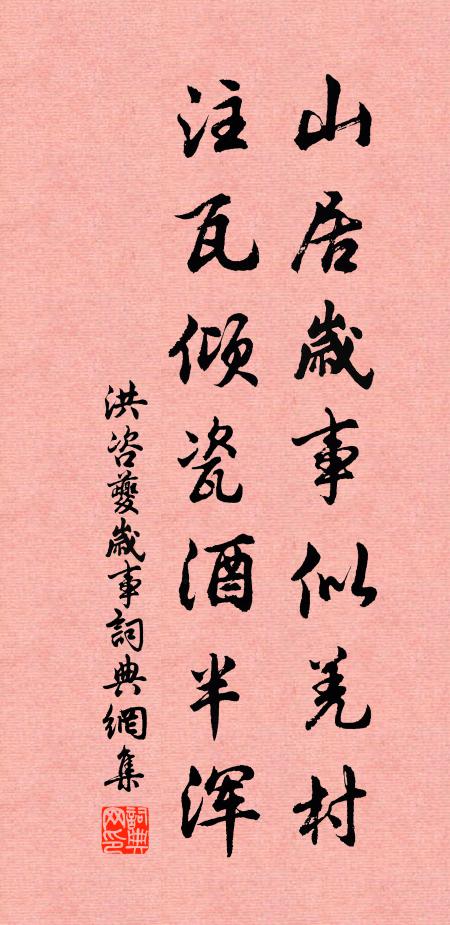 山居歳事似羌村
注瓦倾瓷酒半浑
洪咨夔歳事詞典網集
詞典網印